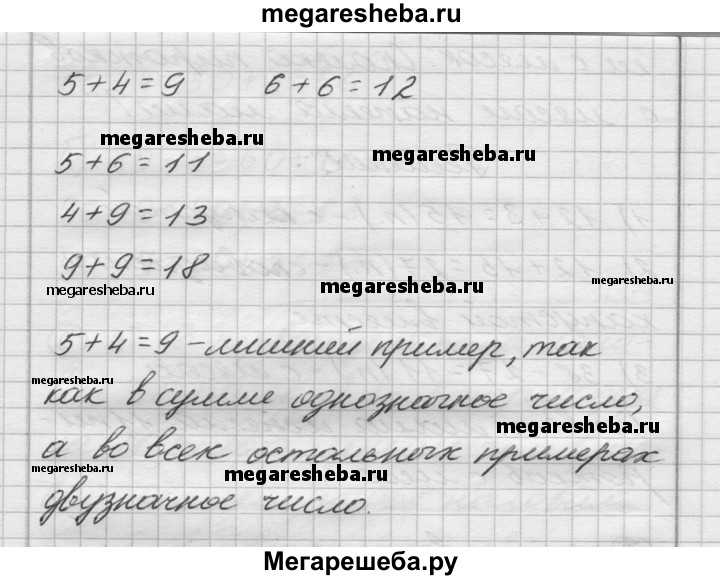 megaresheba.ru
5+4=9 6+6=12
megaresheba.ru megaresheba.ru
5+6=11
4+9=13
9+9=18
megaresheba.ru megaresheba.ru megaresheba.ru
5+4=9 – лишний пример, так
megaresheba.ru
как в сумме однозначное число,
megaresheba.ru
а во всех остальных примерах
megaresheba.ru megaresheba.ru
двузначное число.
Мегарешеба.ру